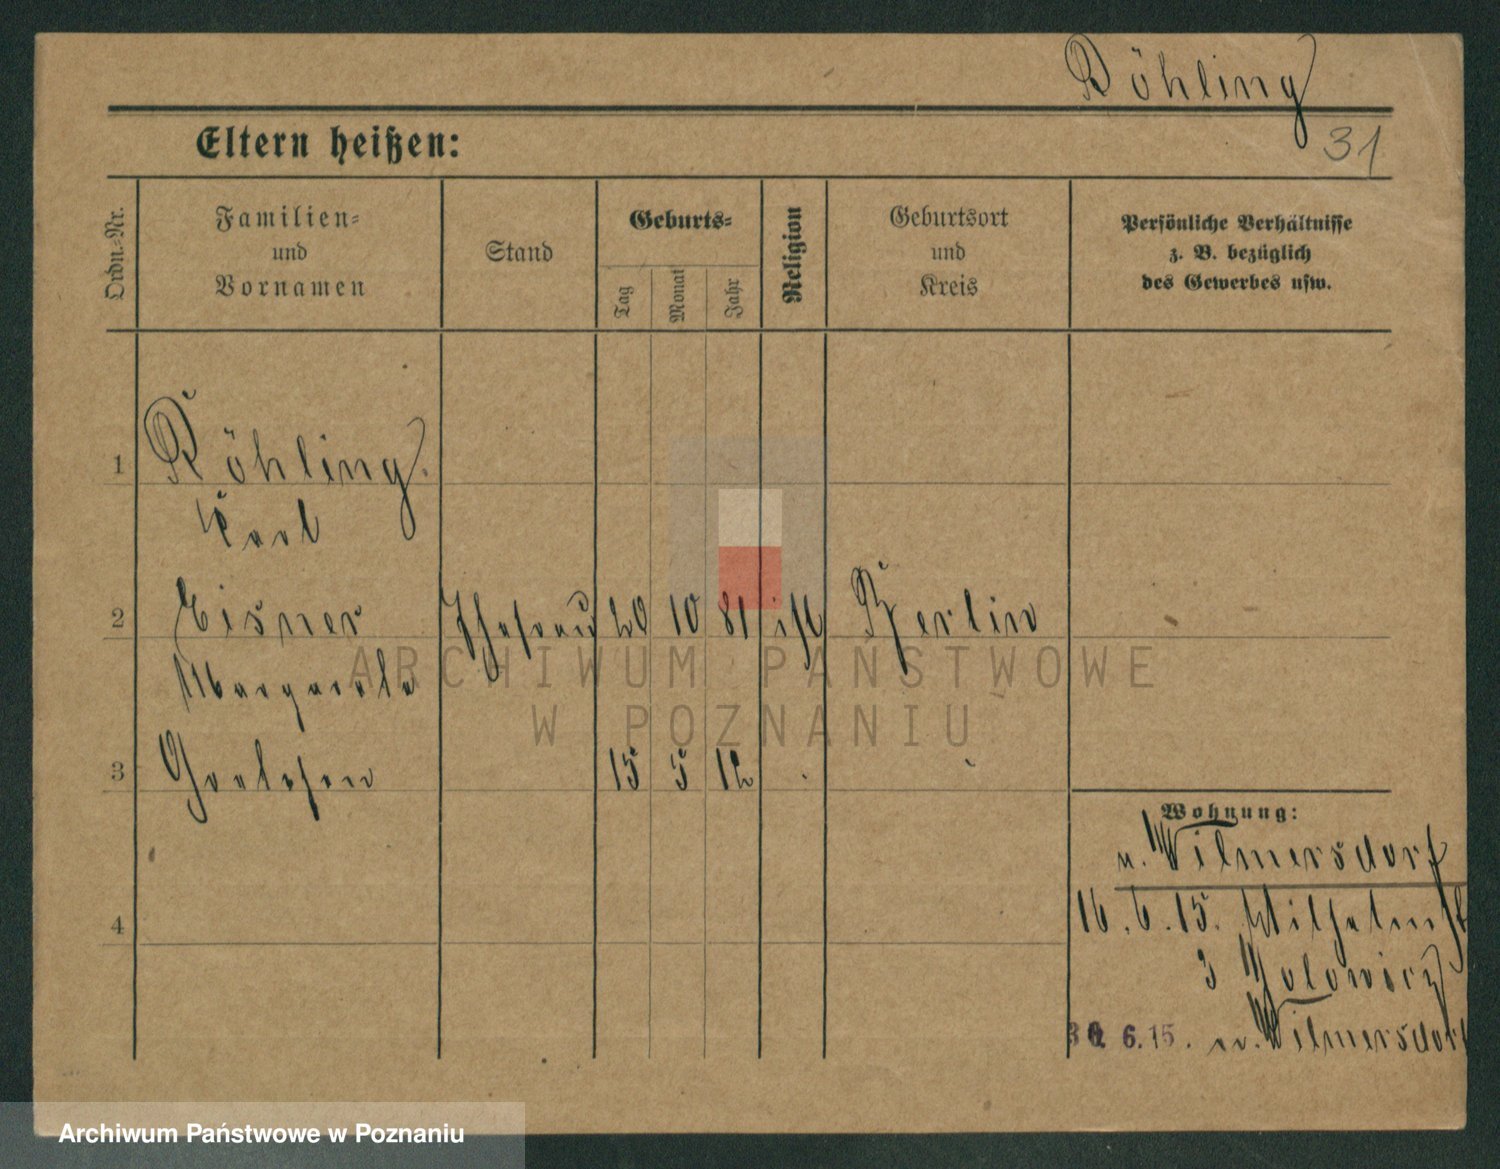 Röhling
31
Eltern heißen:
Ordn.-Nr.
Familien-
und
Vornamen
Stand
Geburts-
Tag
Monat
Jahr
Religion
Geburtsort
und
Kreis
Persönliche Verhältnisse
z. B. bezüglich
des Gewerbes usw.
1
Röhling.
Karl
2
Eisner
Ehefrau
20
10
81
Berlin
Margarete
3
Gretchen
15
5
12
4
Wohnung:
n. Wilmersdorf
16.6.15. Wilhelmstr
3
30. 6.15. Wilmersdorf
ARCHIWUM PAŃSTWOWE
W POZNANIU
Archiwum Państwowe w Poznaniu